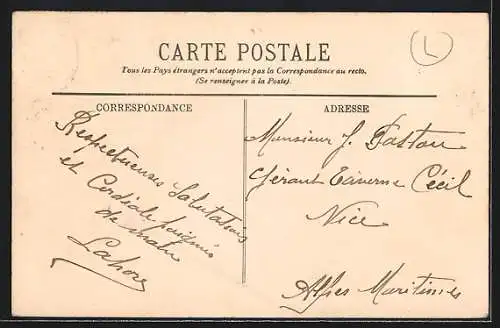 CARTE POSTALE
Tous les Pays étrangers n'acceptent pas la Correspondance au recto.
(Se renseigner à la Poste).
L
CORRESPONDANCE
Respectueuses Salutations
et Cordiale poignée
de main
ADRESSE
Monsieur J. Pastau
Gérant Taverne Cécil
Nice
Alpes Maritimes